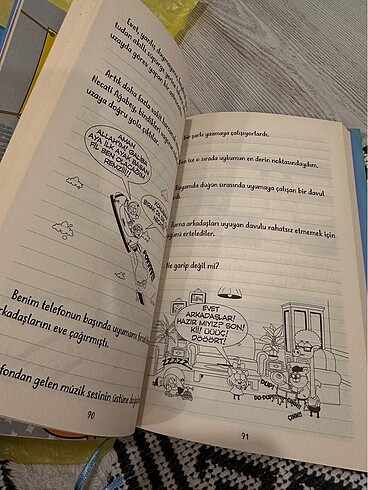 Evet, yanlış duymadınız,
tudan akıllı süpürge
uzayda görev yapan bir
Artık daha fazla vakit
Necati Ağabeyi bindikleri
uzaya doğru yola çıktılar.
AMAN
ALLAH'IM! GALİBA
AYA İLK AYAK BASAN
FİL BEN OLACAĞIM
REMZİİİ!
Benim telefonun başında uyumamı
rkadaşlarını eve çağırmıştı.
efondan gelen müzik sesinin üstüne
90
bir şarkı yazmaya çalışıyorlardı.
Ben ise o sırada uykumun en derin noktasındaydım.
Rüyamda düğün sırasında uyumaya çalışan bir davul
Zurna arkadaşları uyuyan davulu rahatsız etmemek için
düğünü ertelediler.
Ne garip değil mi?
EVET
ARKADAŞLAR!
HAZIR MIYIZ? SON!
Kİİ! ÜÜÜÇ!
DÖÖÖRT!
ZZZZZ
91